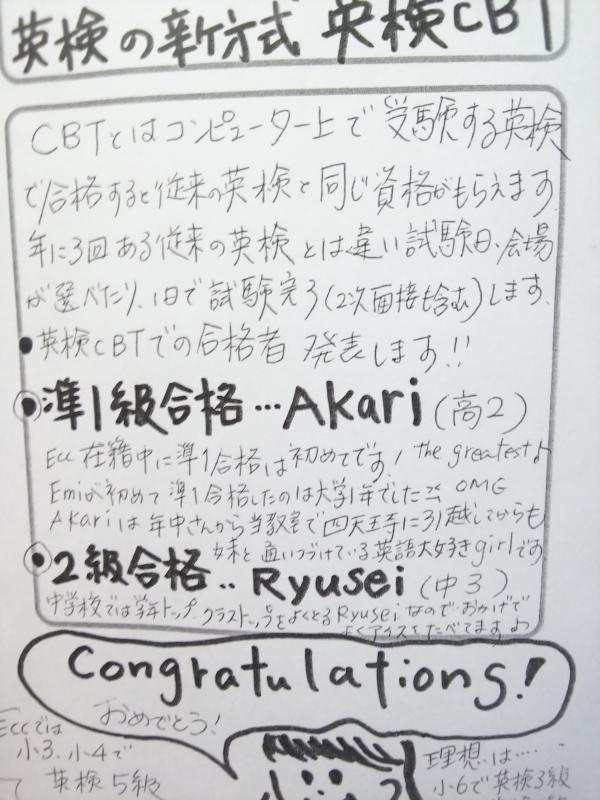 英検の新方式 英検CBT
CBTとはコンピューター上で受験する英検
で合格すると従来の英検と同じ資格がもらえます.
年に3回ある従来の英検とは違い試験日、会場
が選べたり、1日で試験完了(2次面接も含む)します.
●英検CBTでの合格者 発表します!!
●準1級合格…Akari(高2)
Ecc 在籍中に準1合格は初めてです! the greatest♪
Emiが初めて準1合格したのは大学1年でした OMG
Akariは年中さんから当教室で四天王寺に引越してからも
妹と通いつづけている英語大好きgirlです
●2級合格.. Ryusei (中3)
中学校では学年トップ クラストップをよくとるRyuseiなので.おかげで
よくアイスをたべてます♪
Congratulations!
おめでとう!
Eccでは
小3.小4で
英検5級
理想は….
小6で英検3級